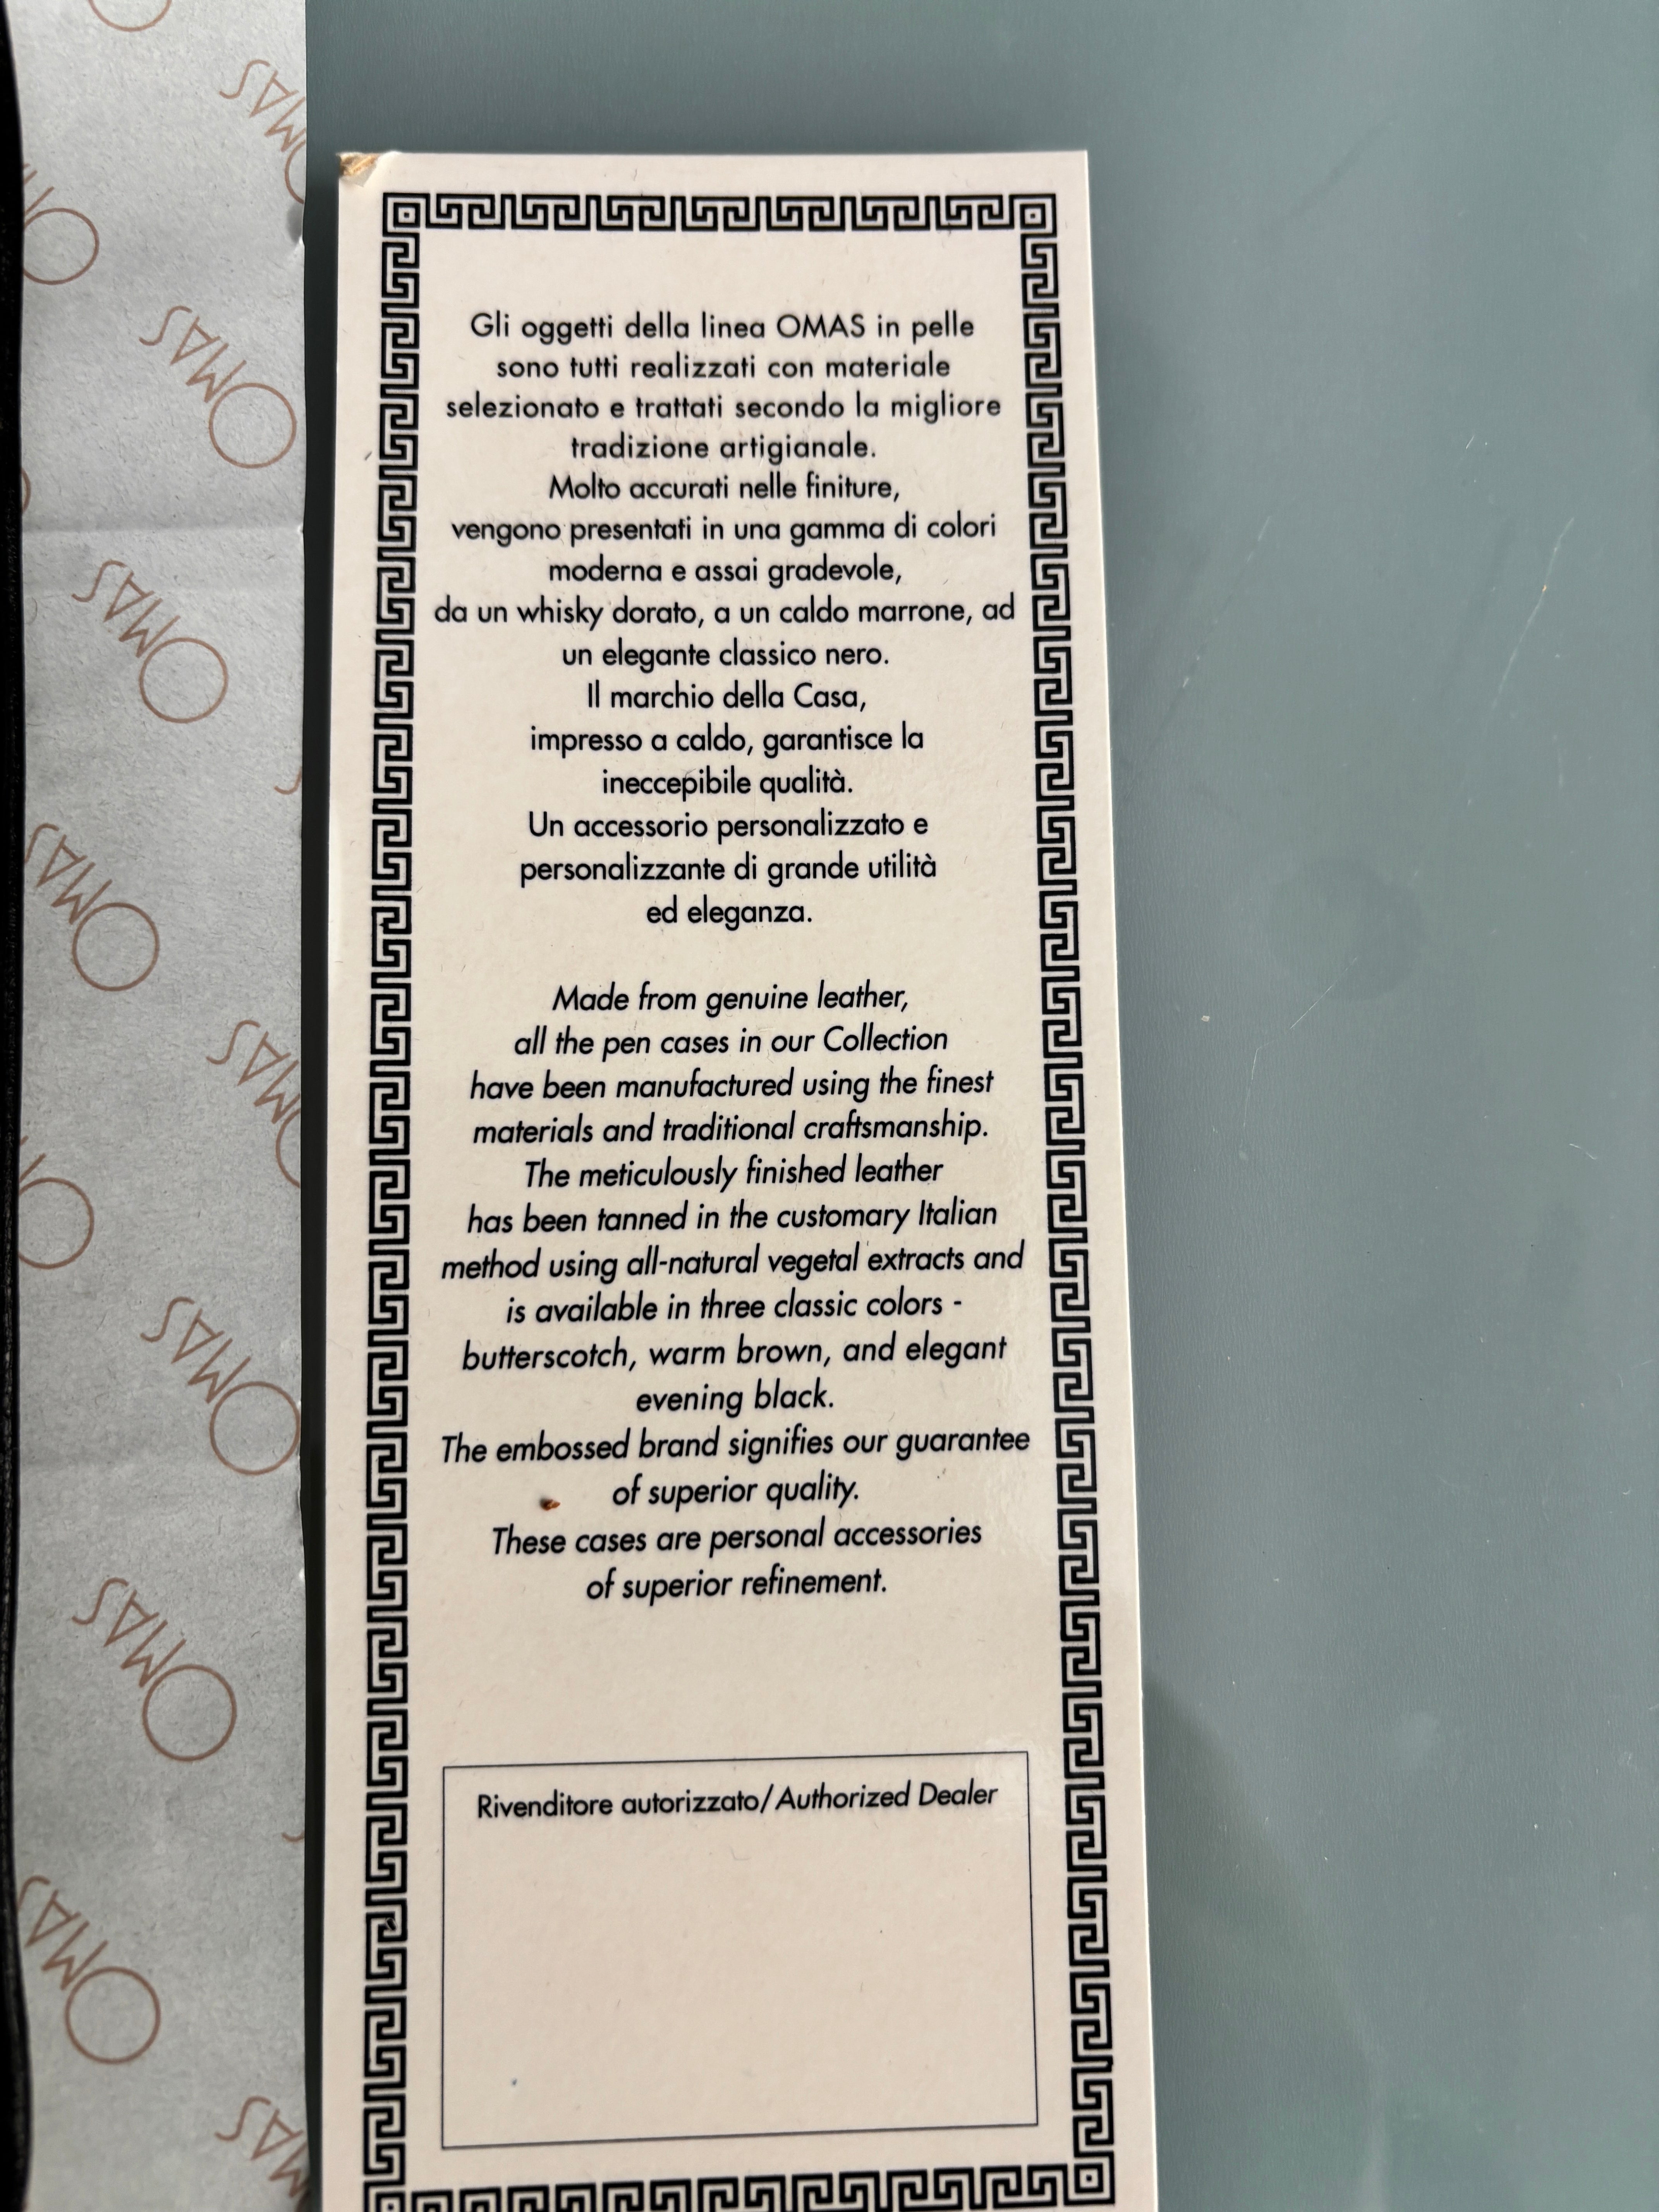 Gli oggetti della linea OMAS in pelle
sono tutti realizzati con materiale
selezionato e trattati secondo la migliore
tradizione artigianale.
Molto accurati nelle finiture,
vengono presentati in una gamma di colori
moderna e assai gradevole,
da un whisky dorato, a un caldo marrone, ad
un elegante classico nero.
Il marchio della Casa,
impresso a caldo, garantisce la
ineccepibile qualità.
Un accessorio personalizzato e
personalizzante di grande utilità
ed eleganza.
Made from genuine leather,
all the pen cases in our Collection
have been manufactured using the finest
materials and traditional craftsmanship.
The meticulously finished leather
has been tanned in the customary Italian
method using all-natural vegetal extracts and
is available in three classic colors -
butterscotch, warm brown, and elegant
evening black.
The embossed brand signifies our guarantee
of superior quality.
These cases are personal accessories
of superior refinement.
Rivenditore autorizzato/Authorized Dealer
OMAS
OMAS
OMAS
OMAS
OMAS
OMAS
OMAS
OMAS
OMAS